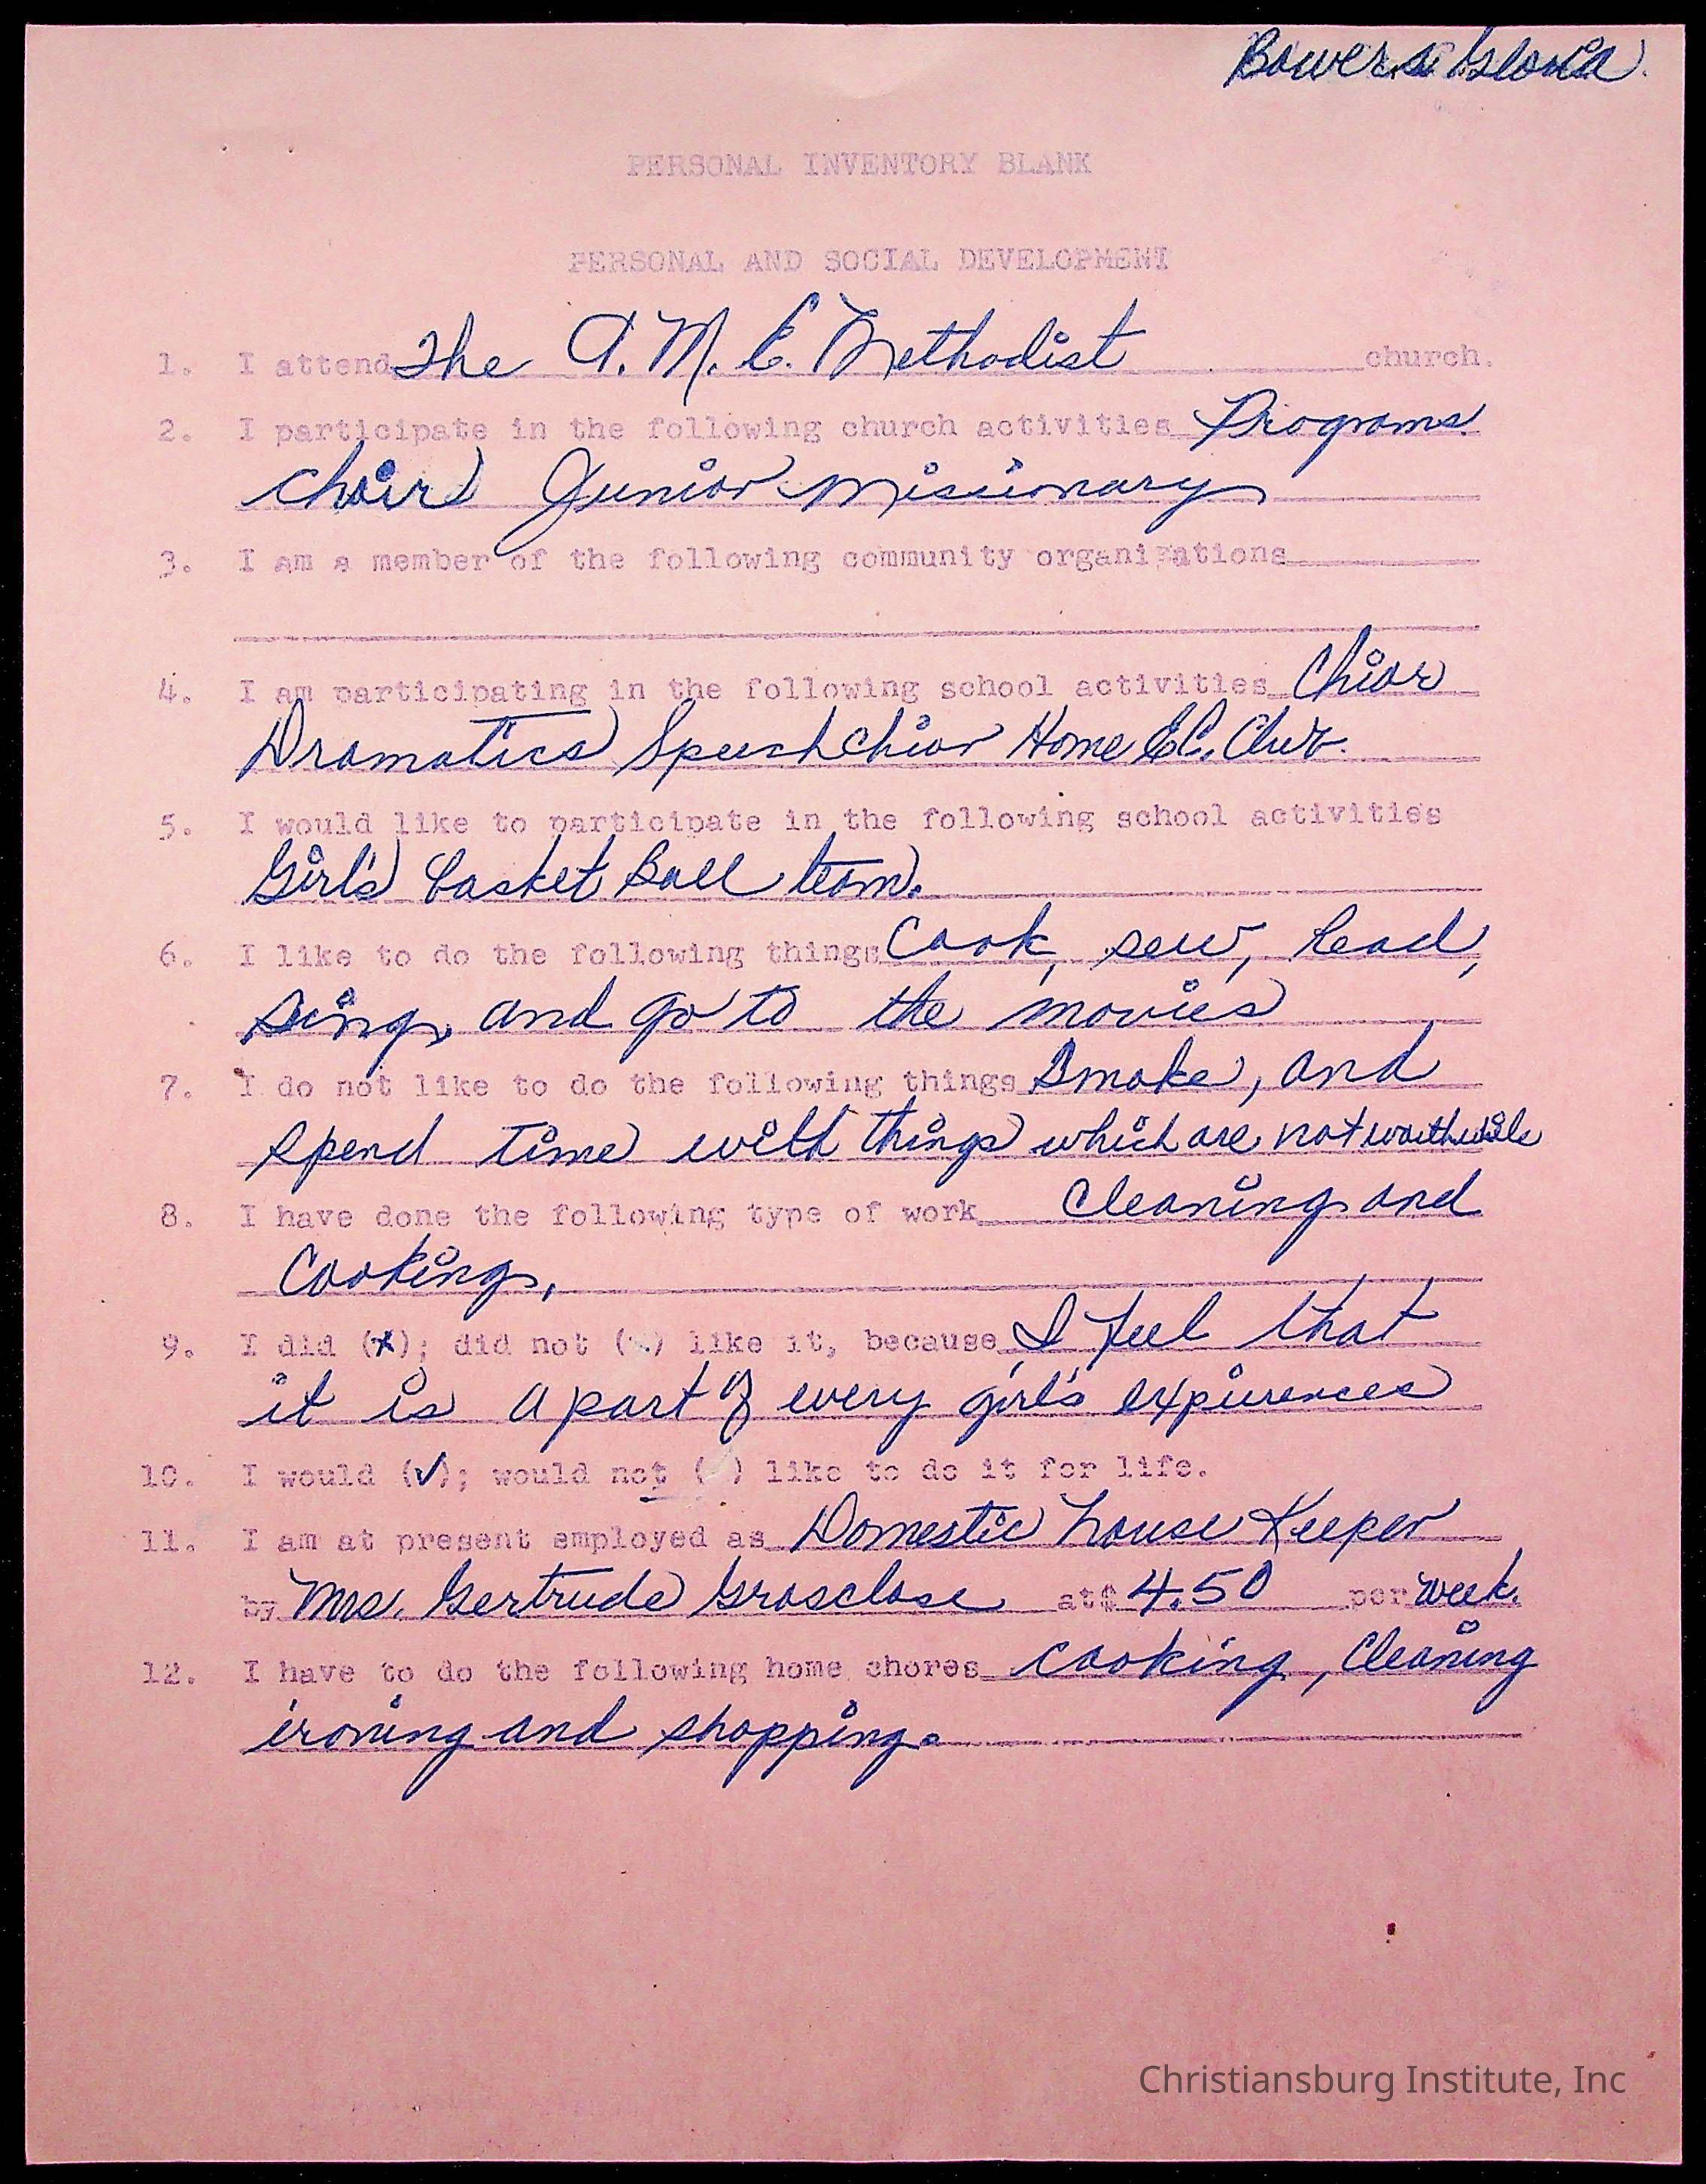 Bowers Gloria.
PERSONAL INVENTORY BLANK
PERSONAL AND SOCIAL DEVELOPMENT
1. I attend The A.M.E. Methodist church.
2. I participate in the following church activities Programs
choir Junior missionary
3. I am a member of the following community organizations
4. I am participating in the following school activities Chior
Dramatics Speech Chior Home EC. Club.
5. I would like to participate in the following school activities
Girl's Basket Ball team.
6. I like to do the following things Cook, sew, Read,
sing, and go to the movies
7. I do not like to do the following things Smoke, and
spend time with things which are not worthwhile
8. I have done the following type of work Cleaning and
Cooking,
9. I did (x); did not ( ) like it, because I feel that
it is a part of every girl's expierences
10. I would (✓); would not ( ) like to do it for life.
11. I am at present employed as Domestic house Keeper
by Mrs. Gertrude Grosclose at $ 4.50 per week.
12. I have to do the following home chores cooking, Cleaning
ironing and shopping.
Christiansburg Institute, Inc